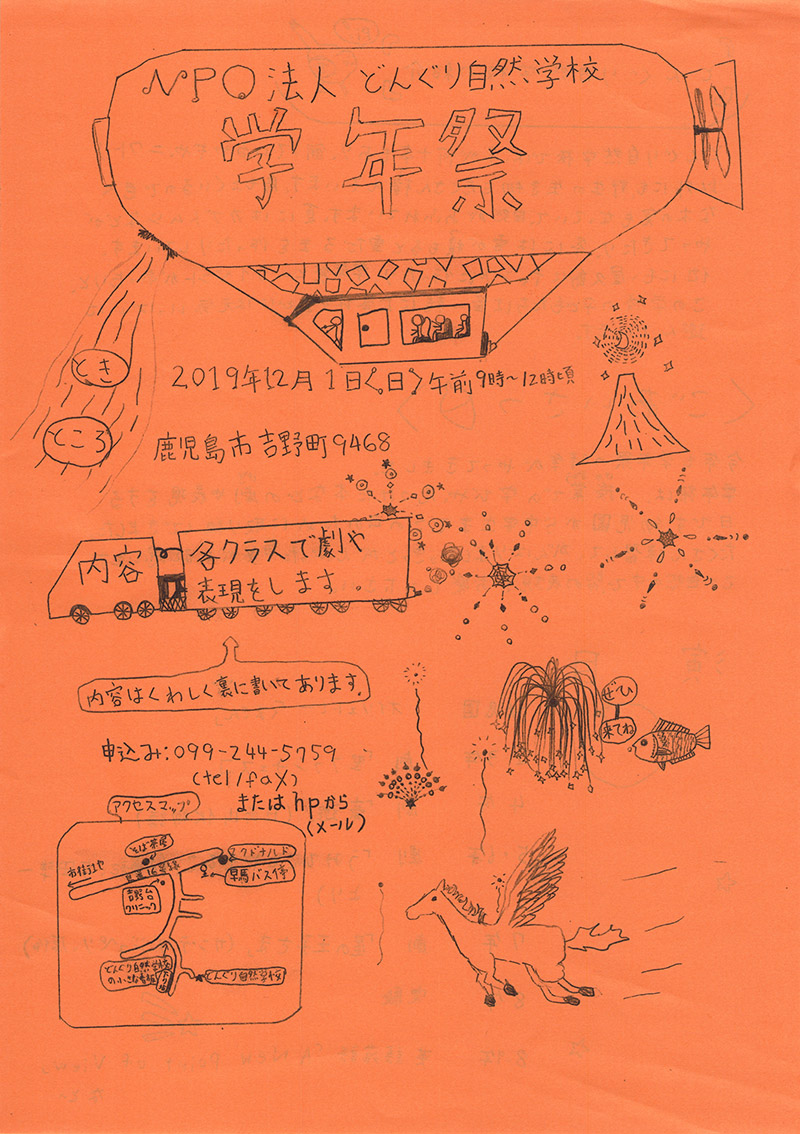 NPO法人 どんぐり自然学校
学年祭
とき
2019年12月1日(日)午前9時~12時頃
ところ
鹿児島市吉野町9468
内容
各クラスで劇や
表現をします。
内容はくわしく裏に書いてあります。
ぜひ
来てね
申込み:099-244-5759
(tel/fax)
またはhpから
(メール)
アクセスマップ
そば茶屋
マクドナルド
市街地や
県道16号線
早馬バス停
吉野台
クリニック
どんぐり自然学校
の小さな看板
下り坂
どんぐり自然学校